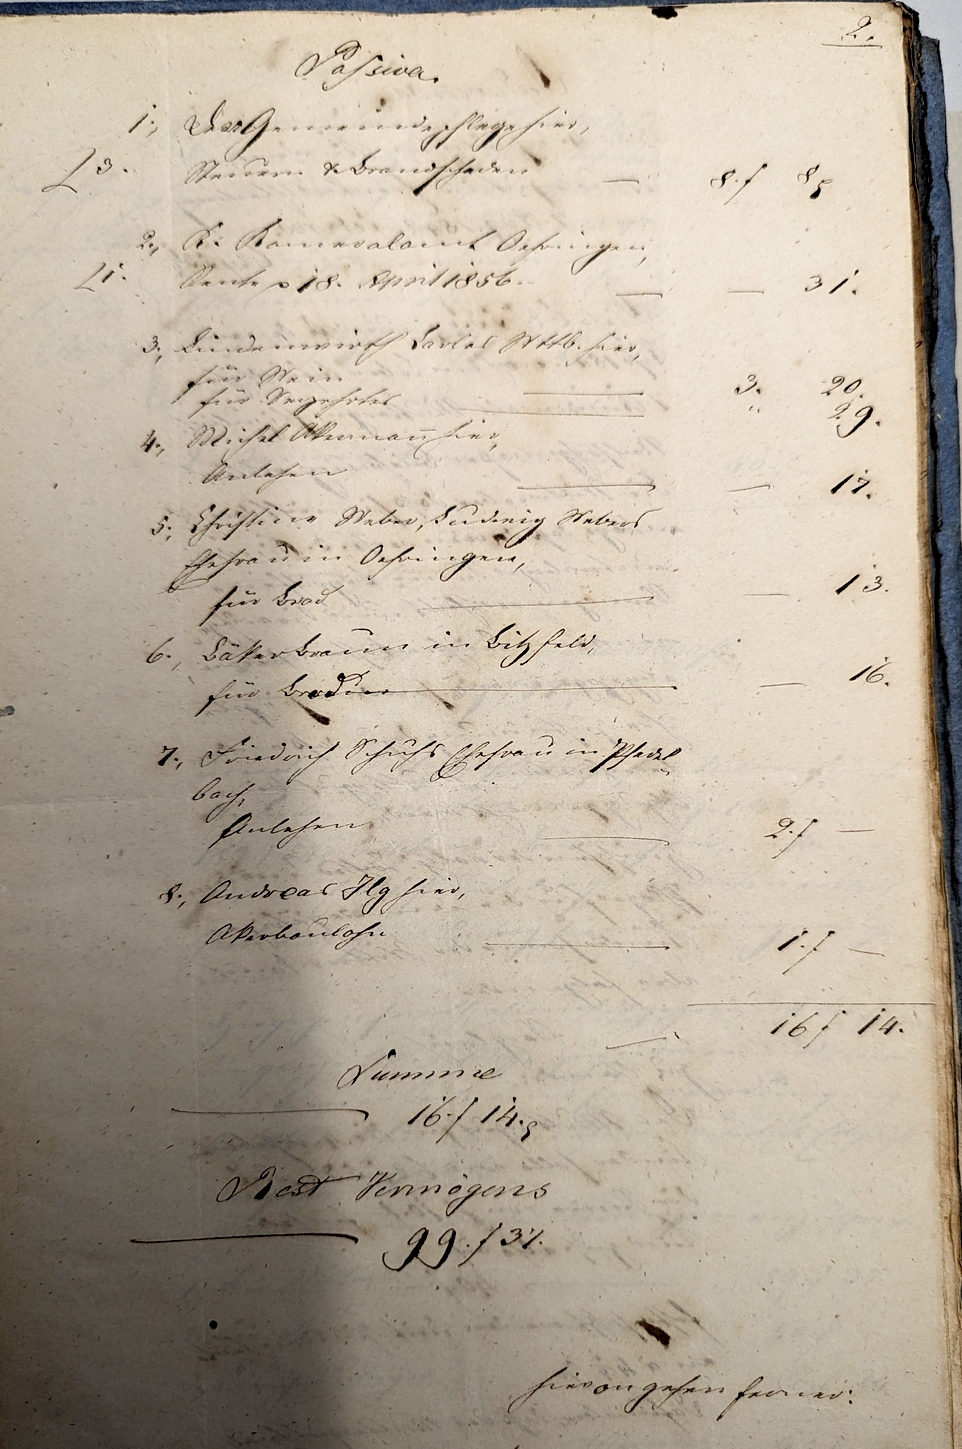 2.
Passiva.
1., Der Gemeindepflege hier,
L 3. Steuern & Brandschaden — 8. f 8 x
2., K. Kameralamt Oehringen,
L 1. Rente p 18. April 1856. — — 31.
3., Lindenwirth Wttb. hier,
für Wein — 3. 20.
für Verzehrtes — " 29.
4., Michel Akermañ hier,
Anlehen — — 17.
5., Christine Weber, Ludwig Webers
Ehefrau in Oehringen,
für Brod — — 13.
6., Bäker Braun in Bitzfeld,
für Brod — — 16.
7., Friedrich Schuhs Ehefrau in Pfedel„
bach,
Anlehen — 2. f —
8., Andreas Ilg hier,
Akerbaulohn — 1. f —
— 16 f 14.
Summe
— 16. f 14. x
Rest Vermögens
— 99. f 37.
hievon gehen ferner: